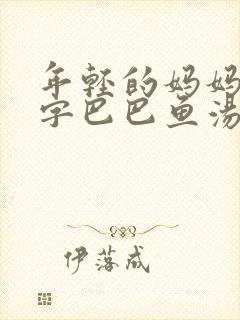 年轻的妈妈
字巴巴鱼汤
伊落成